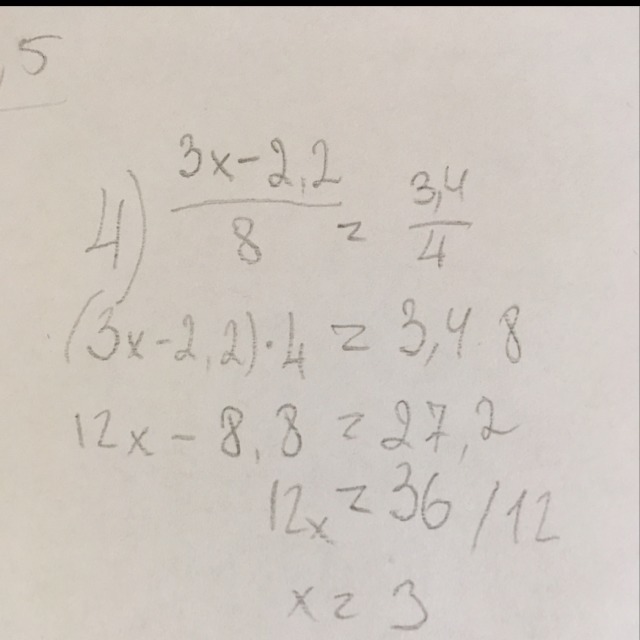 ,5
4) (3x-2,2)/8 = 3,4/4
(3x-2,2)·4 = 3,4 8
12x - 8,8 = 27,2
12x = 36 /12
x = 3